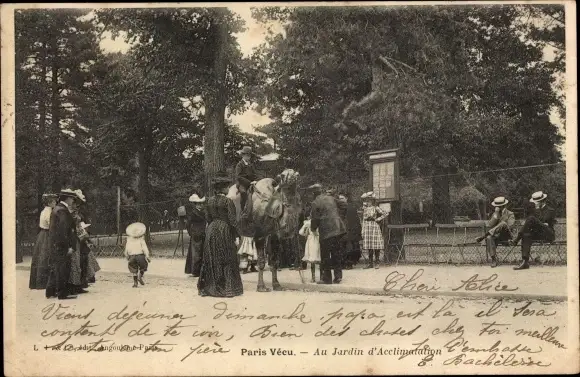 Chère Alice
Viens déjeuner dimanche papa est là et sera
content de te voir, Bien des choses chez toi meilleur
père
Je t'embrasse
L. & Cie, édit., Angoulême-Paris
Paris Vécu. — Au Jardin d'Acclimatation